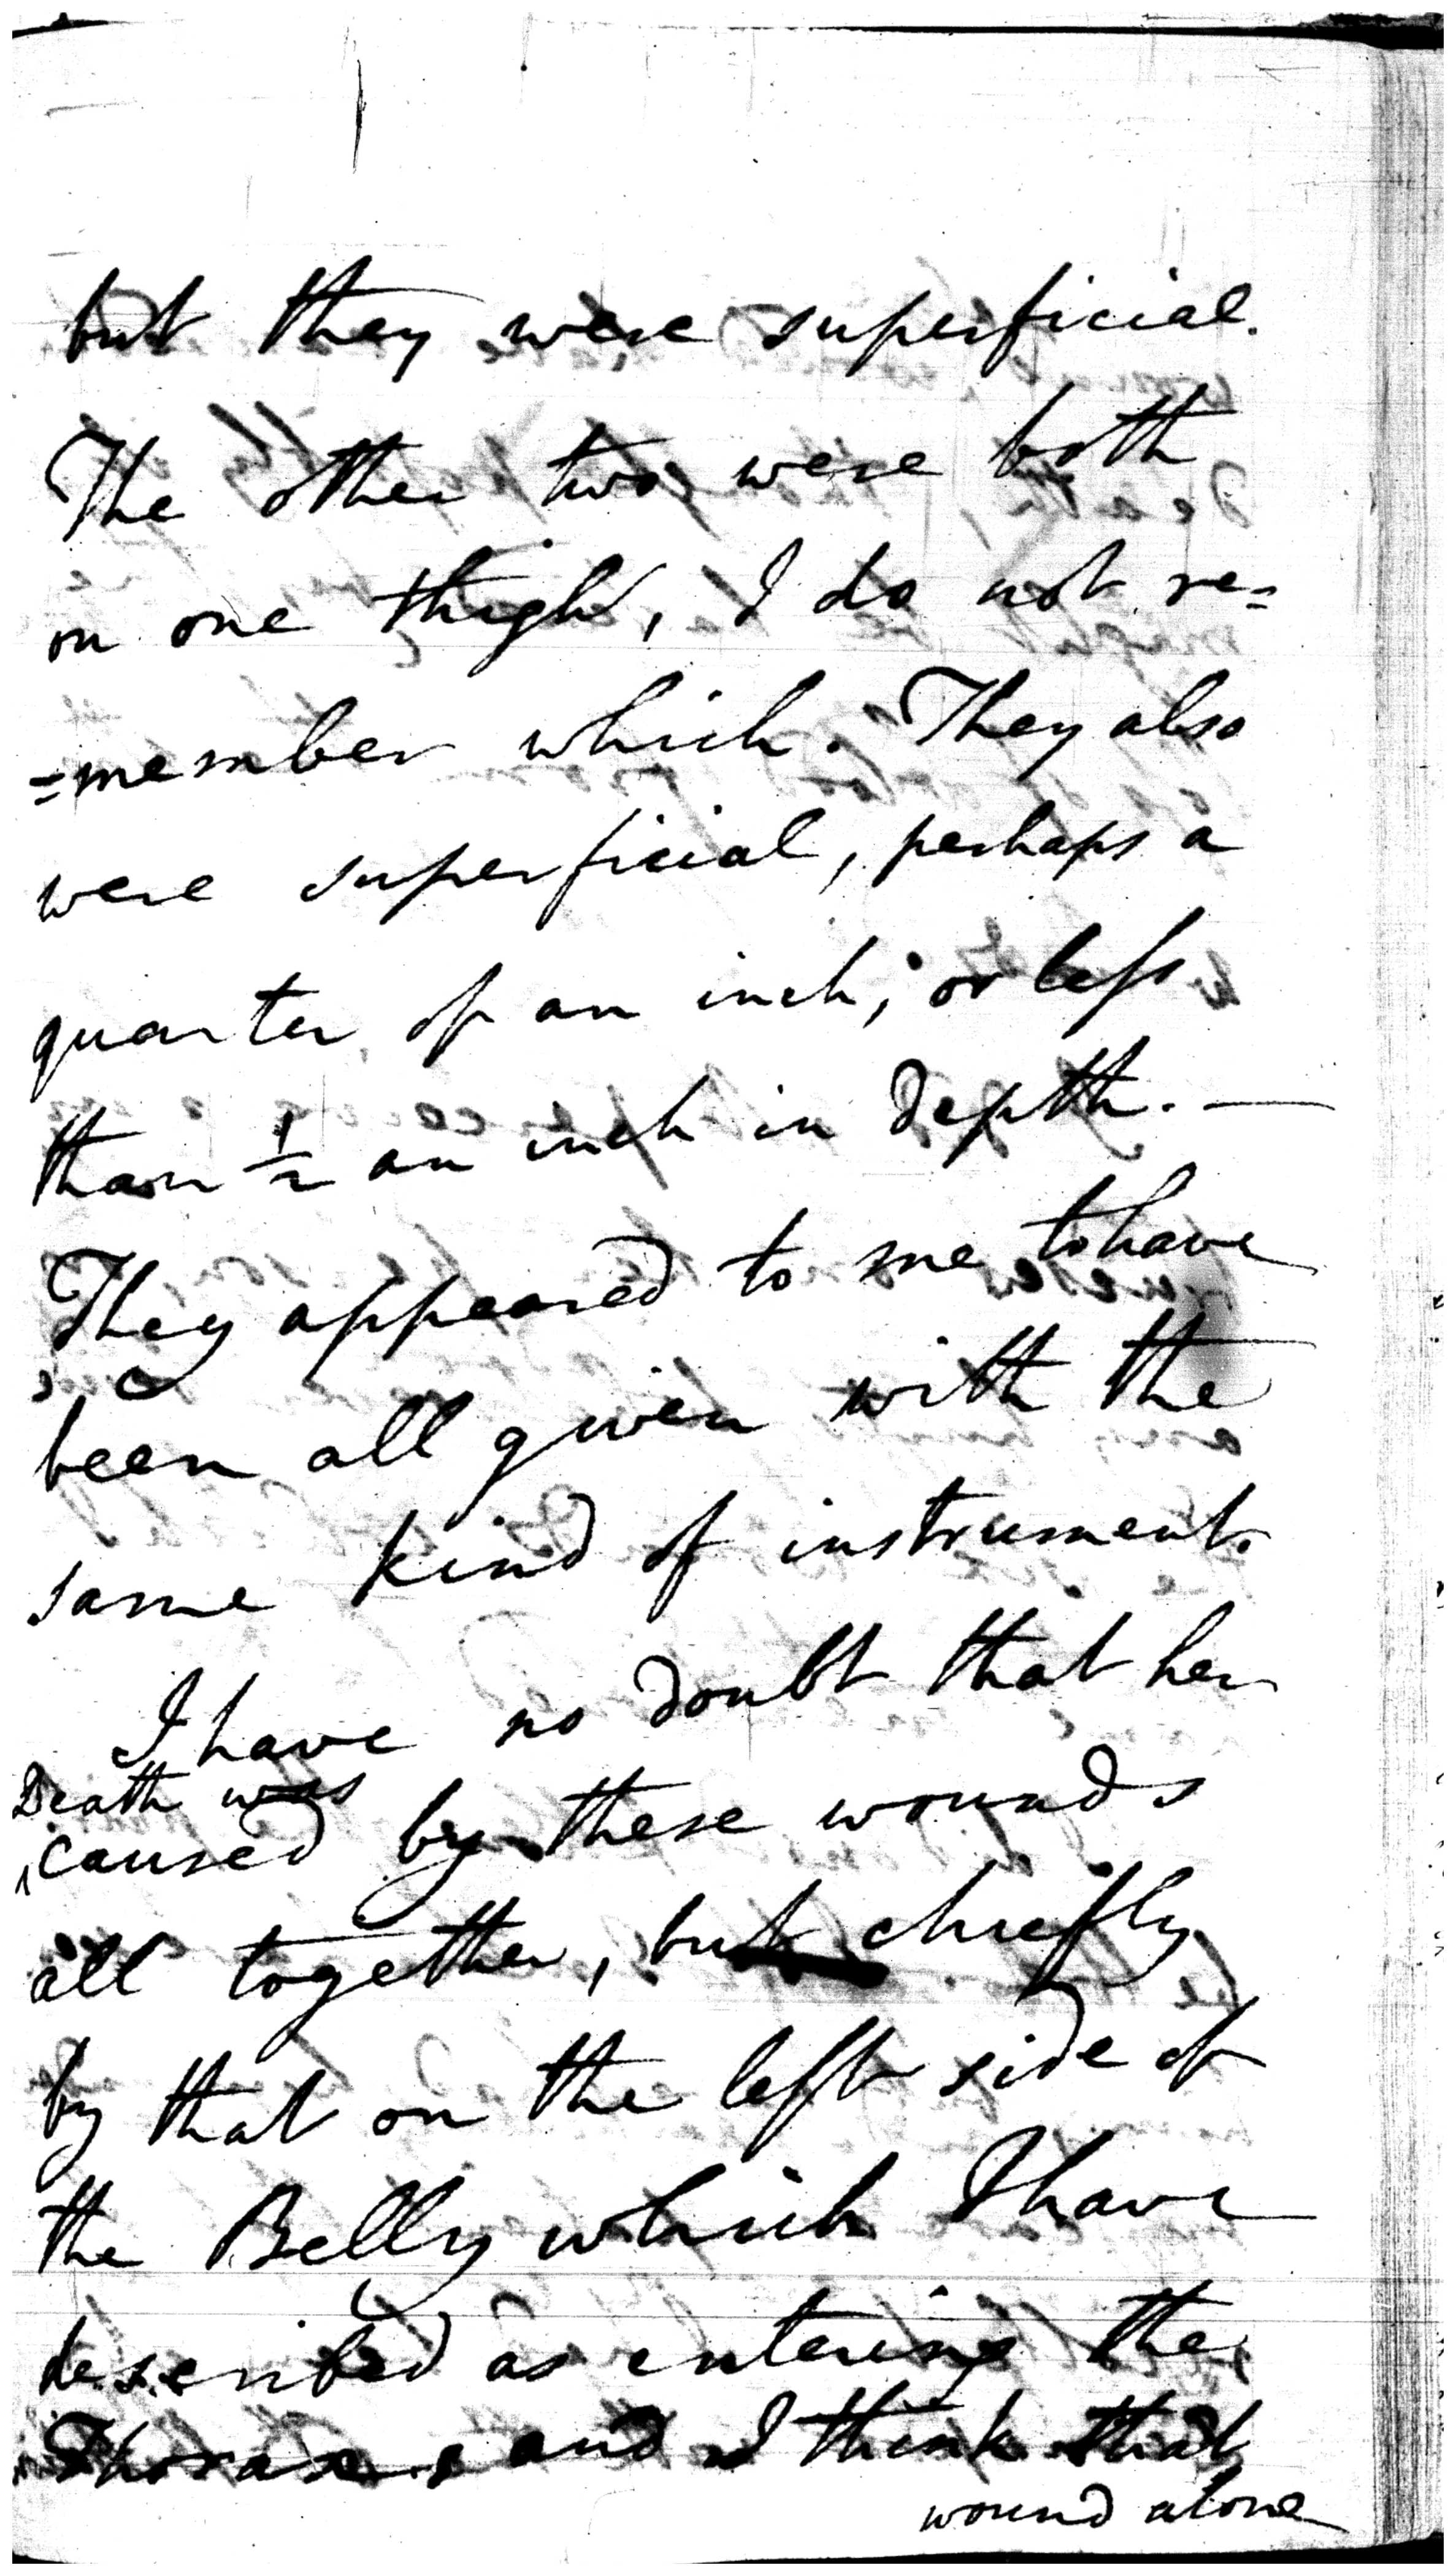 but they were superficial.
The other two were both
on one thigh, I do not re=
=member which. They also
were superficial, perhaps a
quarter of an inch, or less
than 1/2 an inch in depth. —
They appeared to me to have
been all given with the
same kind of instrument.
I have no doubt that her
Death was
caused by these wounds
all together, but chiefly
by that on the left side of
the Belly which I have
described as entering the
Thorax, and I think that
wound alone